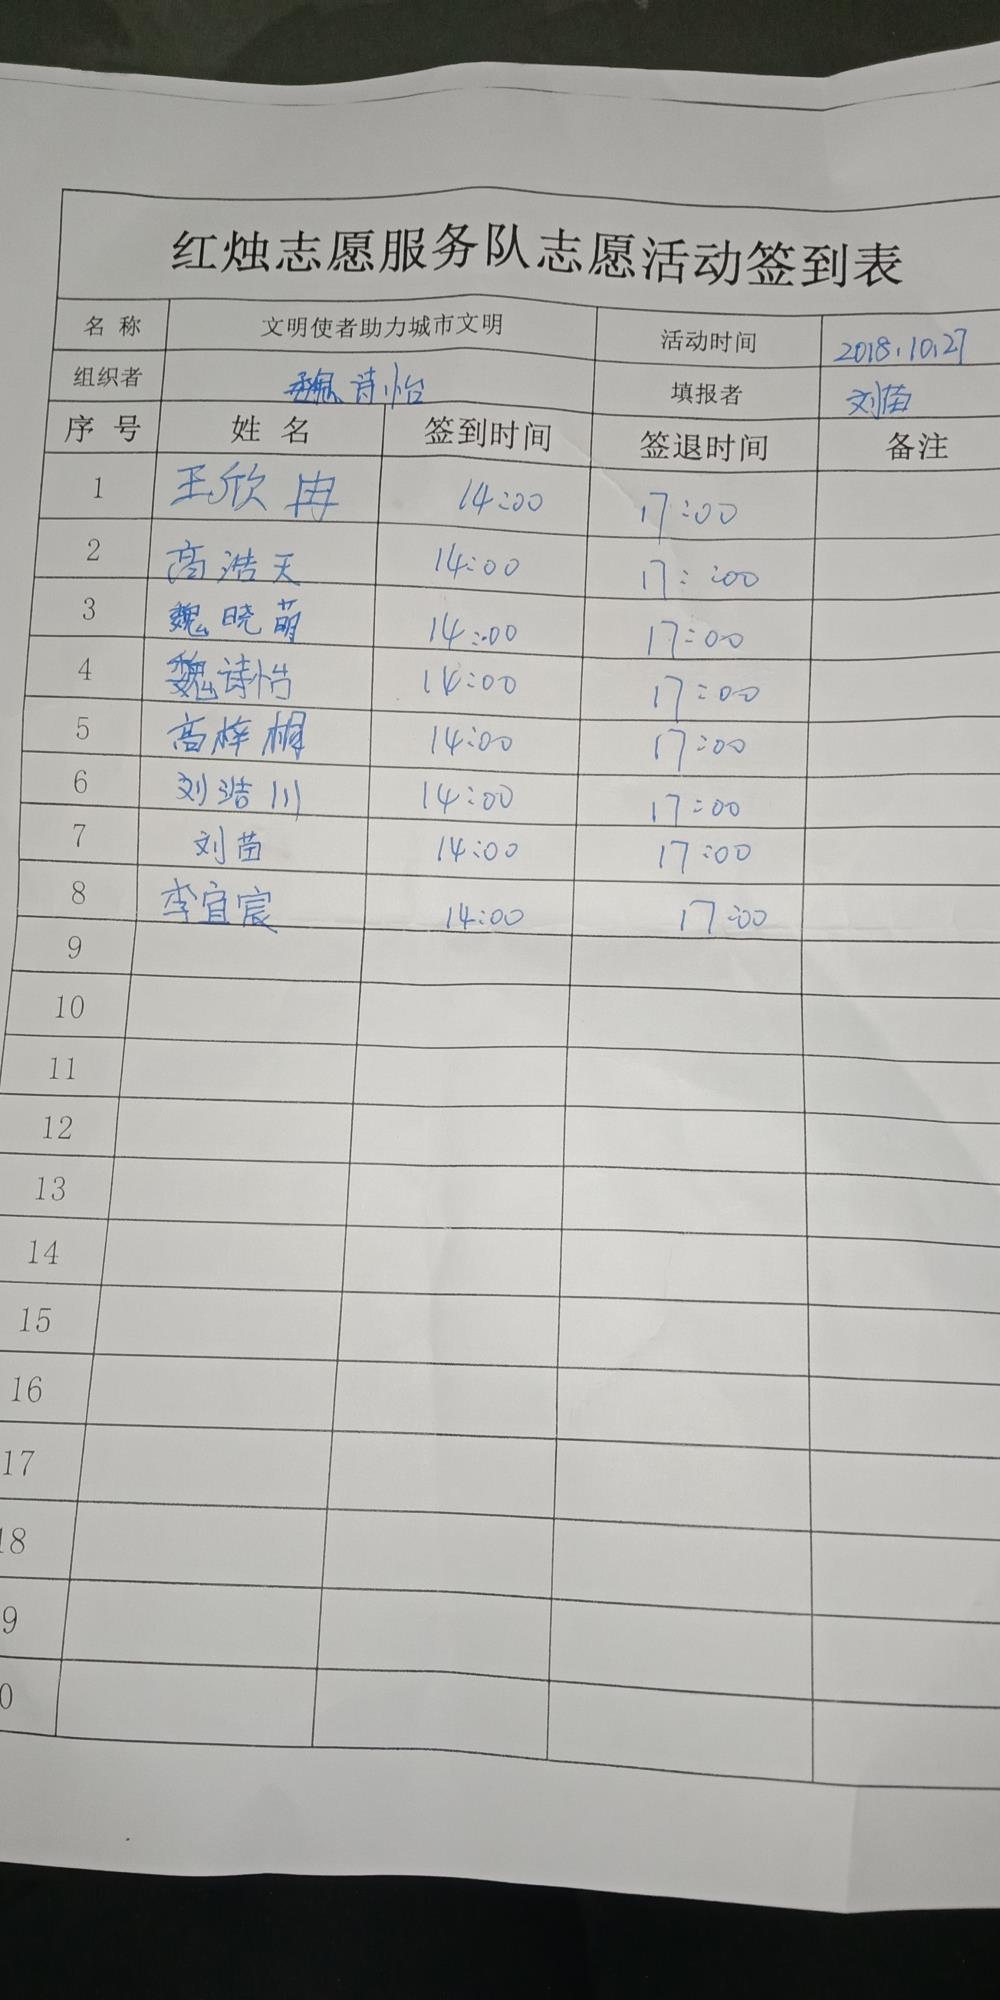 红烛志愿服务队志愿活动签到表
名 称 文明使者助力城市文明 活动时间 2018.10.27
组织者 魏诗怡 填报者 刘苗
序 号 姓 名 签到时间 签退时间 备注
1 王欣冉 14:00 17:00
2 高浩天 14:00 17:00
3 魏晓萌 14:00 17:00
4 魏诗怡 14:00 17:00
5 高梓桐 14:00 17:00
6 刘浩川 14:00 17:00
7 刘苗 14:00 17:00
8 李宜宸 14:00 17:00
9
10
11
12
13
14
15
16
17
18
9
0